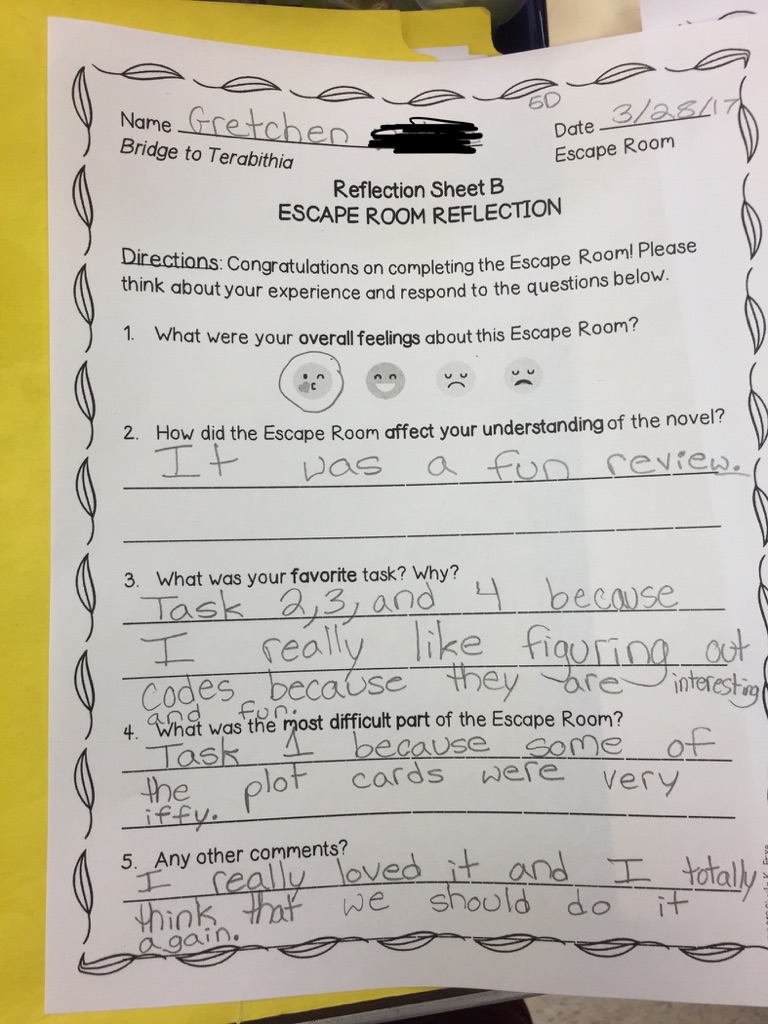 5D
Name Gretchen Date 3/28/17
Bridge to Terabithia Escape Room
Reflection Sheet B
ESCAPE ROOM REFLECTION
Directions: Congratulations on completing the Escape Room! Please
think about your experience and respond to the questions below.
1. What were your overall feelings about this Escape Room?
2. How did the Escape Room affect your understanding of the novel?
It was a fun review.
3. What was your favorite task? Why?
Task 2,3, and 4 because
I really like figuring out
codes because they are interesting
and fun.
4. What was the most difficult part of the Escape Room?
Task 1 because some of
the plot cards were very
iffy.
5. Any other comments?
I really loved it and I totally
think that we should do it
again.